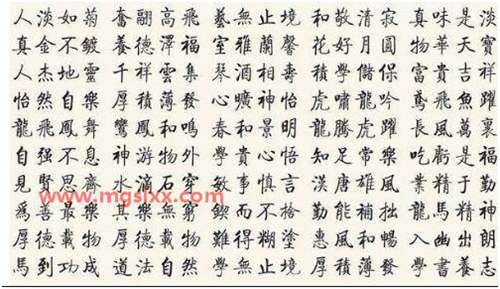 人淡如菊 奮翮高飛 藝無止境 和敬清寂 真味是淡
真金不鍍 養德澤福 室雅蘭馨 花好月圓 物華天寶
人杰地靈 千祥雲集 琴 相壽 學儲 富貴吉祥
怡然自樂 厚積薄發 曠神怡 虎嘯龍吟 鳶飛魚躍
龍飛鳳舞 鸞鳳和鳴 春和景明 龍騰虎躍 長風萬裏
自强不息 神游物外 學貴心悟 知足常樂 吃虧是福
見賢思齊 水滴石穿 敏事慎言 漢唐雄風 業精于勤
www.mgslxx.com
爲善最樂 其樂無窮 鍥而不捨 勤能補拙 龍馬精神
厚德載物 厚德載物 難得糊塗 惠風和暢 入幽出朗
馬到功成 道法自然 學無止境 厚積薄發 書養志